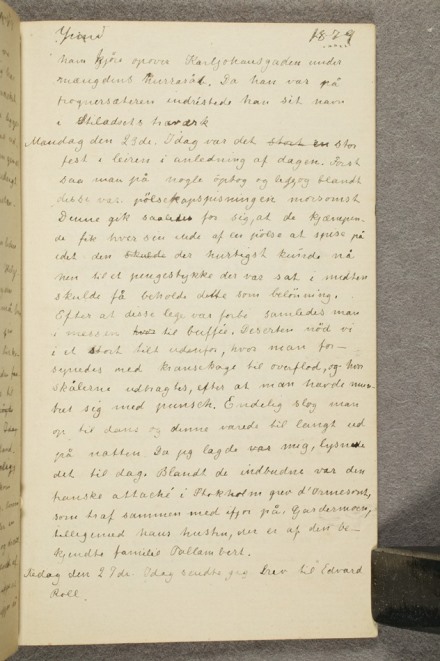 Juni 1879
ham kjøre opover Karljohansgaden under
mængdens hurraraab. Da han var på
frognersæteren indristede han sit navn
i
Mandag den 23de. Idag var det stort en stor
fest i leiren i anledning af dagen. Først
saa man på nogle optog og
disse var pølsekapspisningen morsomst
Denne gik saaledes for sig, at de kjæmpen-
de fik hver sin ende af en pølse at spise på
idet den skulde der hurtigst kunde nå
hen til et pengestykke der var sat i midten
skulde få beholde dette som belönning.
Efter at disse lege var forbi samledes man
i messen til buffée. Deserten nöd vi
i et stort telt udenfor, hvor man for-
synedes med kransekage til overflod, og hvor
skålerne udbragtes, efter at man havde
set sig med punsch. Endelig slog man
op til dans og denne varede til langt ud
på natten. Da jeg lagde mig, lysnede
det til dag. Blandt de indbudne var den
franske attaché i Stokholm grev d'Ormesson,
som traf sammen med ifjor på Gardermoen,
tilligemed hans hustru, der er af den be-
kjendte familie
den 27de. Idag sendte jeg brev til Edvard
Roll.